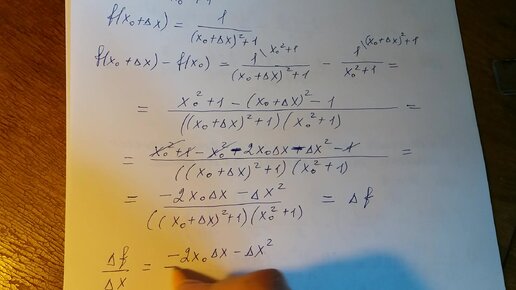 f(x₀+Δx) = 1/((x₀+Δx)²+1)
f(x₀+Δx) - f(x₀) = 1\x₀²+1/((x₀+Δx)²+1) - 1\(x₀+Δx)²+1/(x₀²+1) =
= (x₀²+1-(x₀+Δx)²-1)/(((x₀+Δx)²+1)(x₀²+1)) =
= (x₀²+1-x₀²-2x₀Δx-Δx²-1)/(((x₀+Δx)²+1)(x₀²+1)) =
= (-2x₀Δx-Δx²)/(((x₀+Δx)²+1)(x₀²+1)) = Δf
Δf/Δx = -2x₀Δx-Δx²